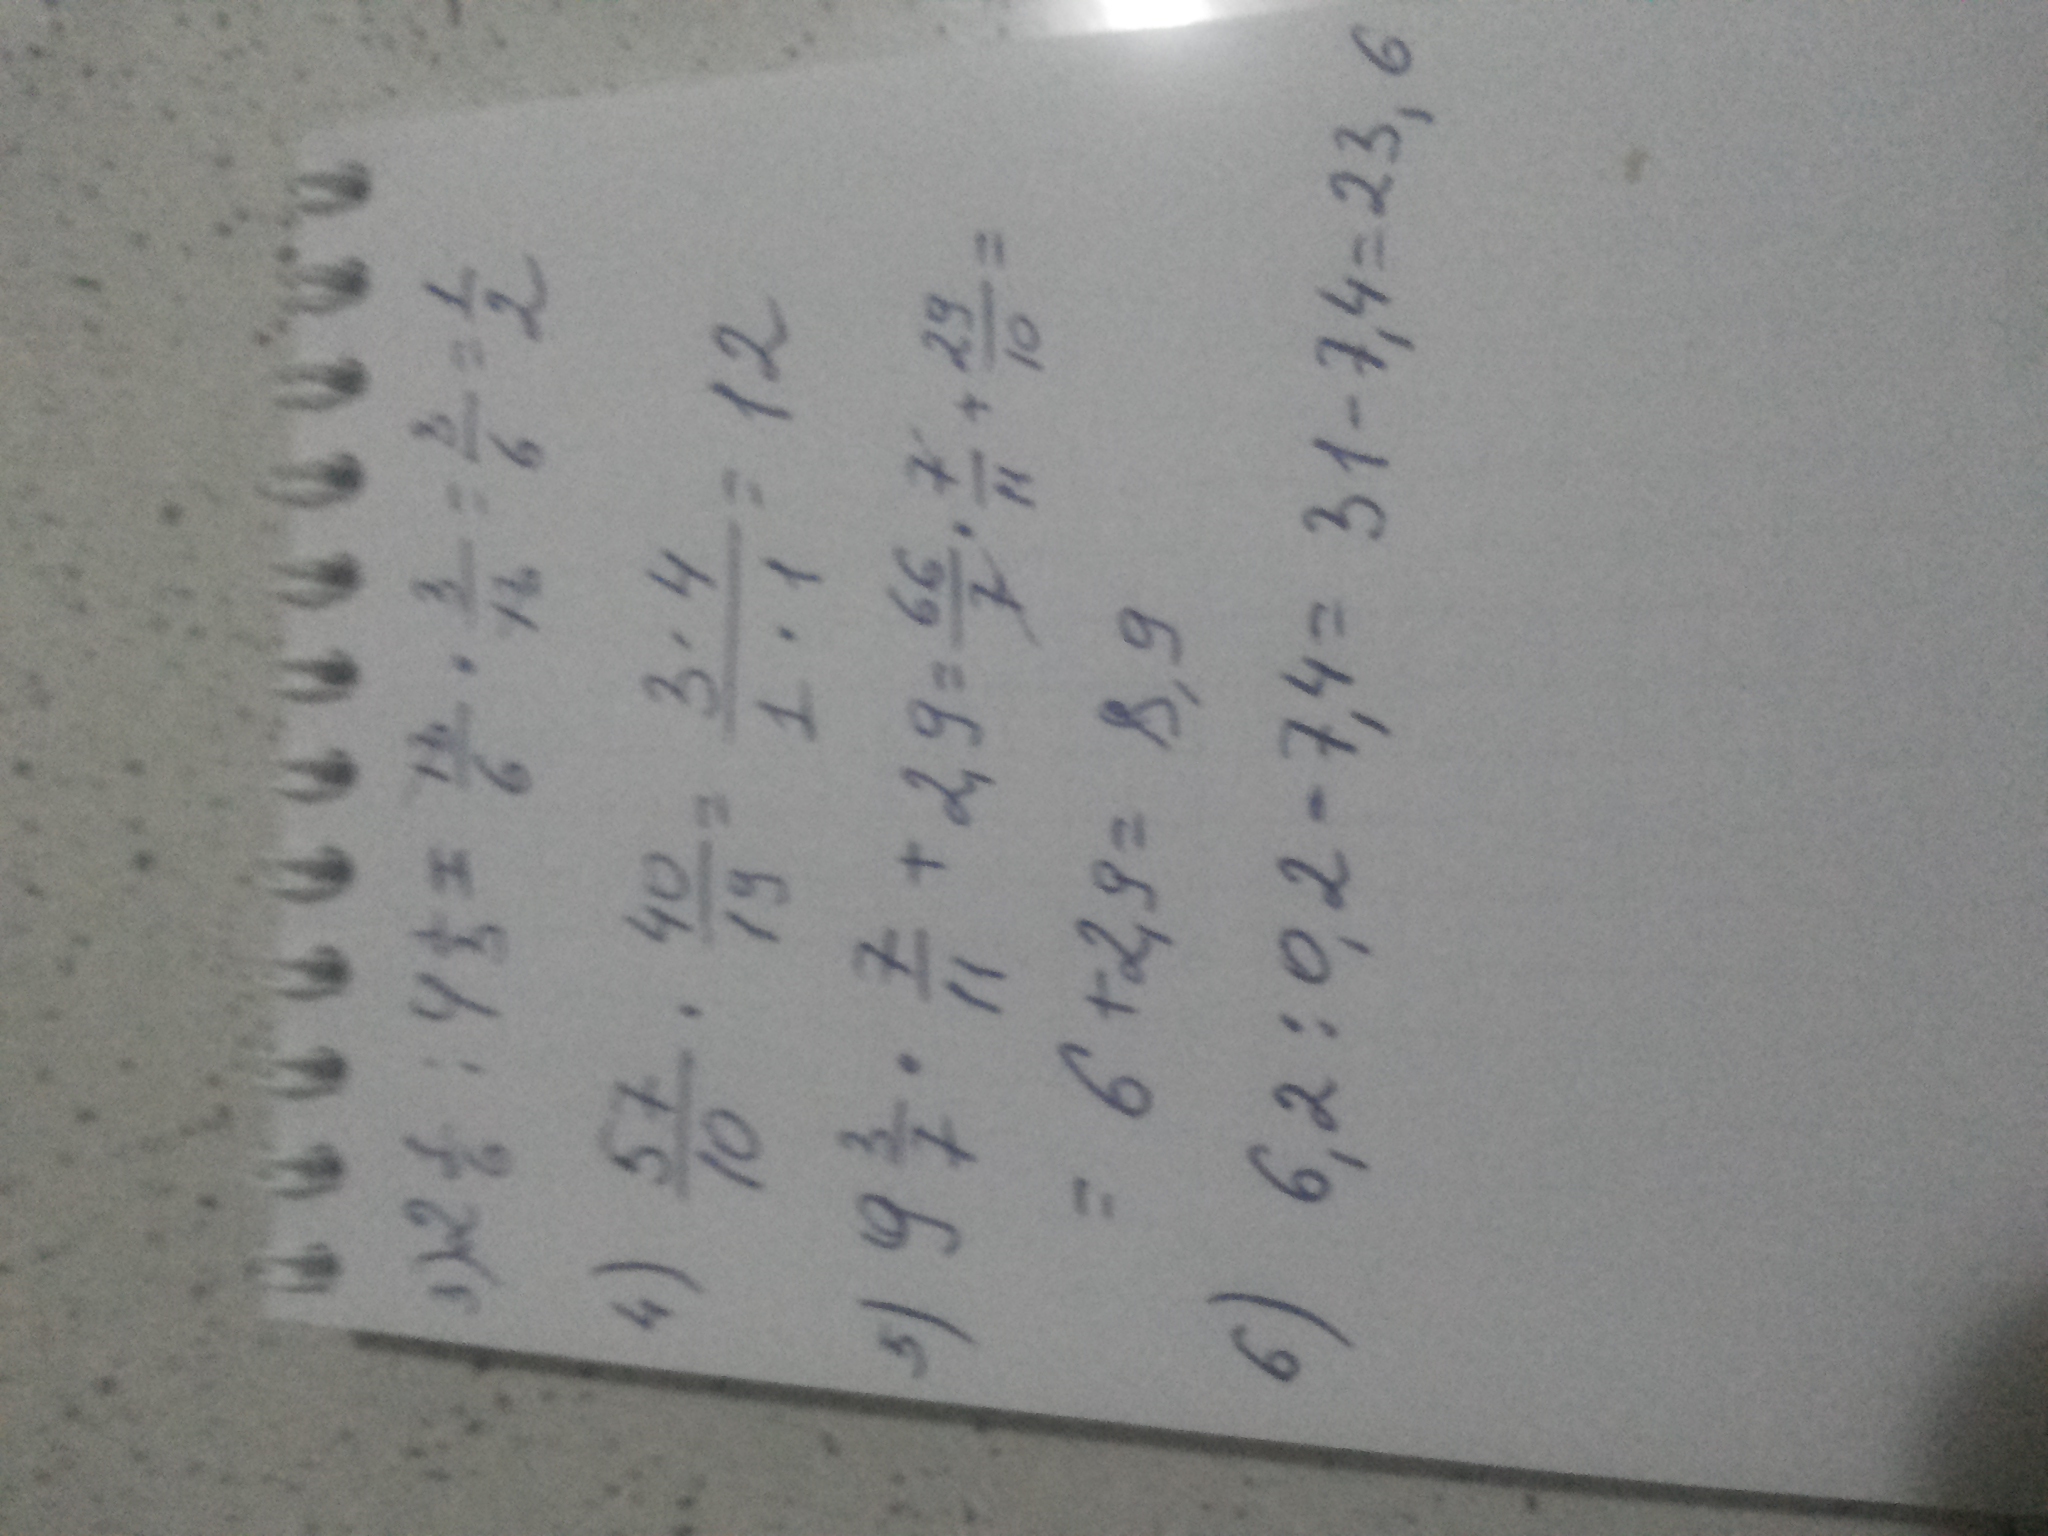 3) 2 1/6 : 4 1/3 = 13/6 · 3/13 = 3/6 = 1/2
4) 57/10 · 40/19 = 3·4/1·1 = 12
5) 9 3/7 · 7/11 + 2,9 = 66/7 · 7/11 + 29/10 =
= 6 + 2,9 = 8,9
6) 6,2 : 0,2 - 7,4 = 31 - 7,4 = 23,6